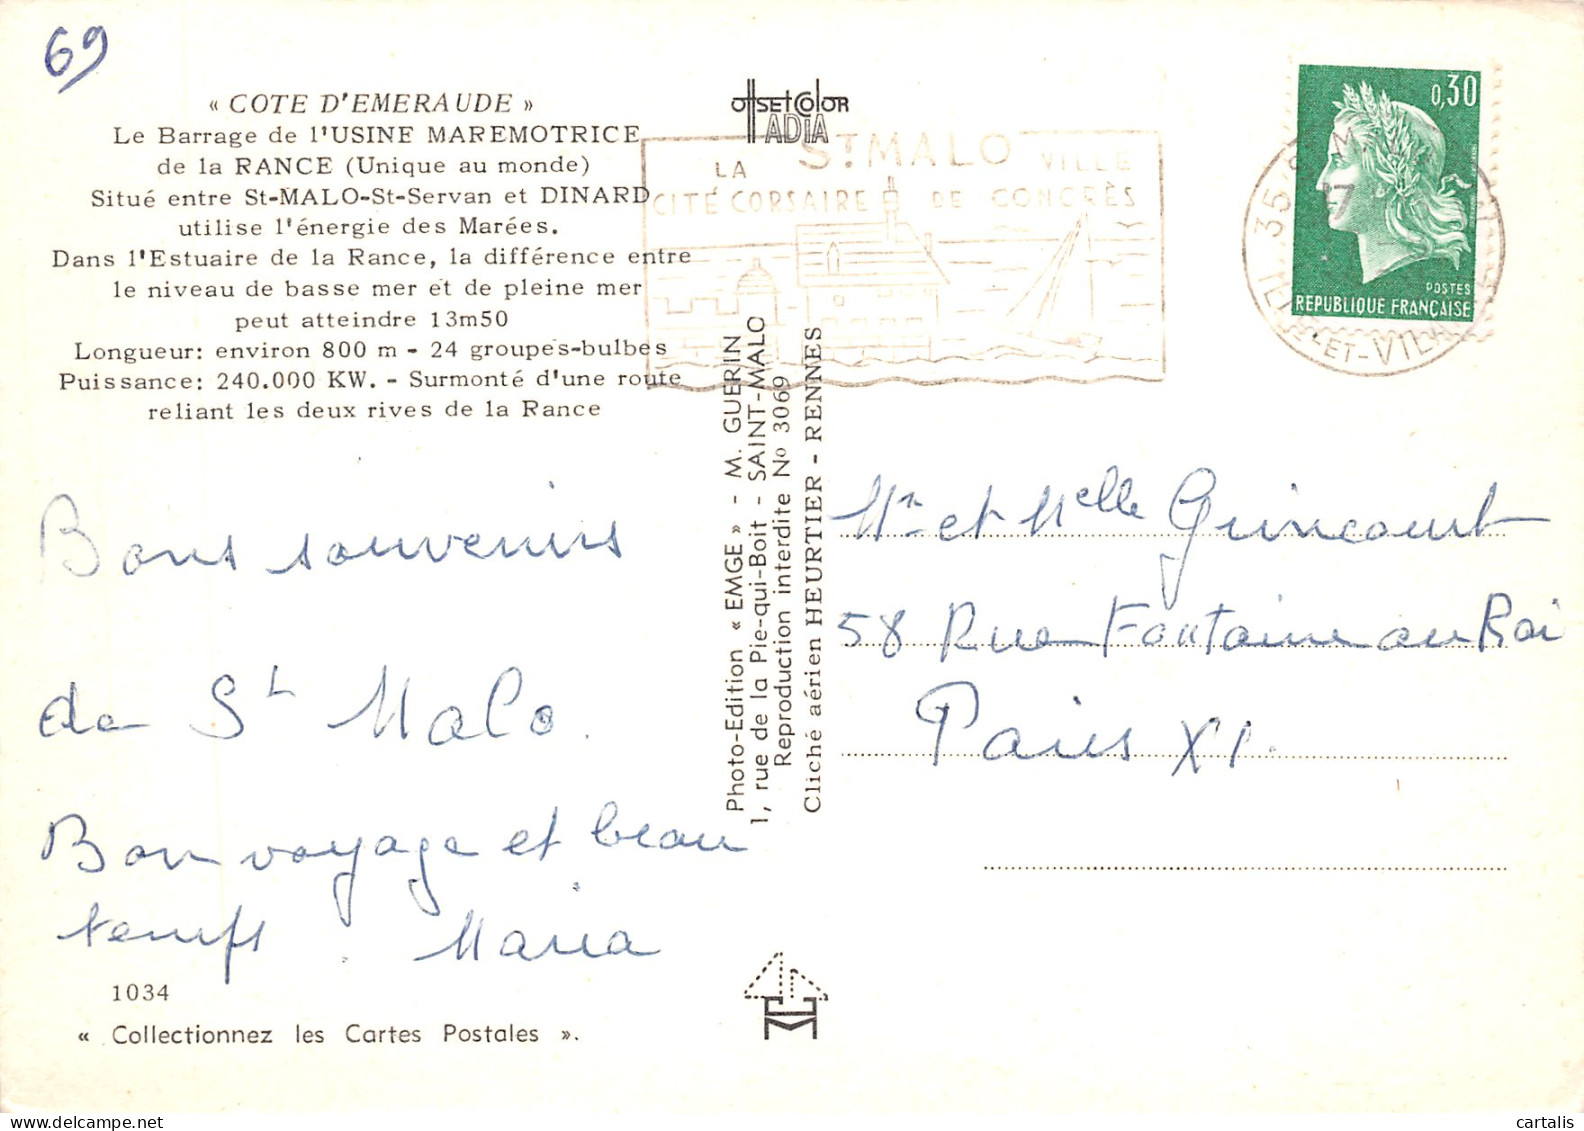 69
« COTE D'EMERAUDE »
Le Barrage de l'USINE MAREMOTRICE
de la RANCE (Unique au monde)
Situé entre St-MALO-St-Servan et DINARD
utilise l'énergie des Marées.
Dans l'Estuaire de la Rance, la différence entre
le niveau de basse mer et de pleine mer
peut atteindre 13m50
Longueur: environ 800 m - 24 groupes-bulbes
Puissance: 240.000 KW. - Surmonté d'une route
reliant les deux rives de la Rance
Bons souvenirs
de St Malo.
Bon voyage et beau
temps. Maria
1034
« Collectionnez les Cartes Postales ».
OffsetColor
IADIA
St MALO
LA VILLE
CITÉ CORSAIRE DE CONGRÈS
Photo-Edition « EMGE » - M. GUERIN
1, rue de la Pie-qui-Boit - SAINT-MALO
Reproduction interdite No 3069
Cliché aérien HEURTIER - RENNES
0,30
POSTES
REPUBLIQUE FRANÇAISE
35
ET-VIL
Mr et Melle Guincourt
58 Rue Fontaine au Roi
Paris XI.
cartalis